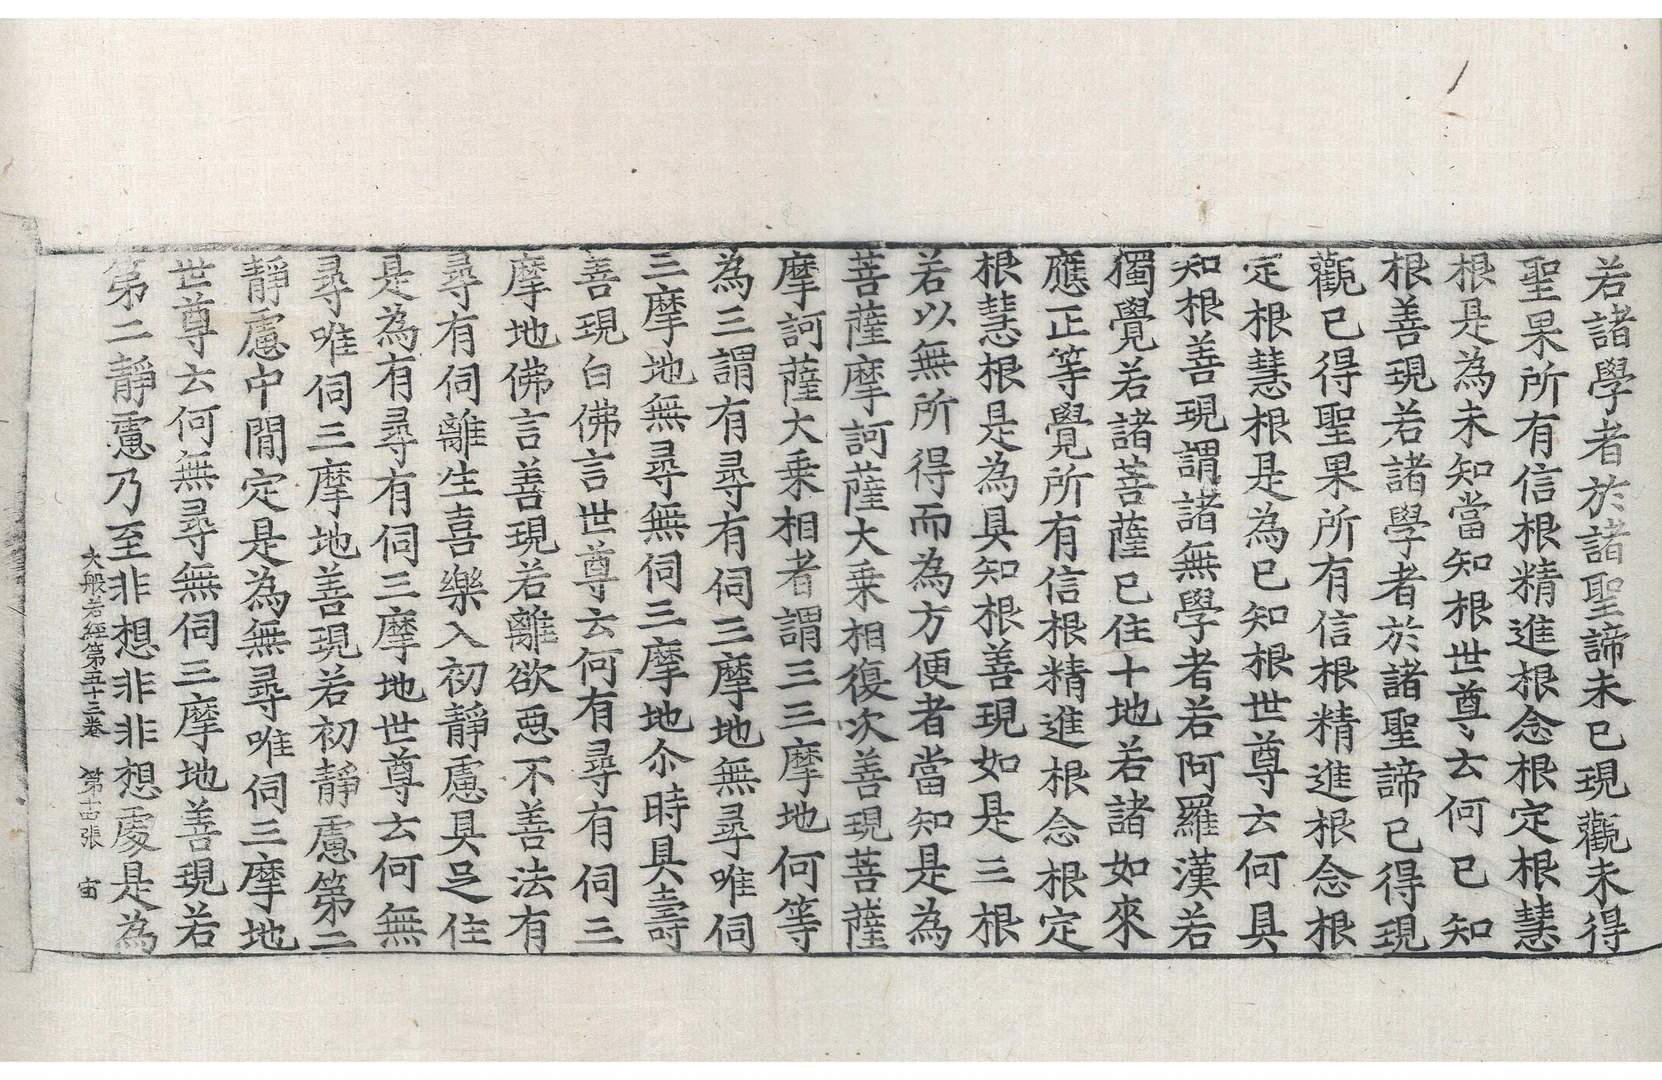 若諸學者於諸聖諦未已現觀未得
聖果所有信根精進根念根定根慧
根是為未知當知根世尊云何已知
根善現若諸學者於諸聖諦已得現
觀已得聖果所有信根精進根念根
定根慧根是為已知根世尊云何具
知根善現謂諸無學者若阿羅漢若
獨覺若諸菩薩已住十地若諸如來
應正等覺所有信根精進根念根定
根慧根是為具知根善現如是三根
若以無所得而為方便者當知是為
菩薩摩訶薩大乘相復次善現菩薩
摩訶薩大乘相者謂三三摩地何等
為三謂有尋有伺三摩地無尋唯伺
三摩地無尋無伺三摩地尒時具壽
善現白佛言世尊云何有尋有伺三
摩地佛言善現若離欲惡不善法有
尋有伺離生喜樂入初靜慮具足住
是為有尋有伺三摩地世尊云何無
尋唯伺三摩地善現若初靜慮第二
靜慮中閒定是為無尋唯伺三摩地
世尊云何無尋無伺三摩地善現若
第二靜慮乃至非想非非想處是為
大般若經第五十三卷 第十四張 宙